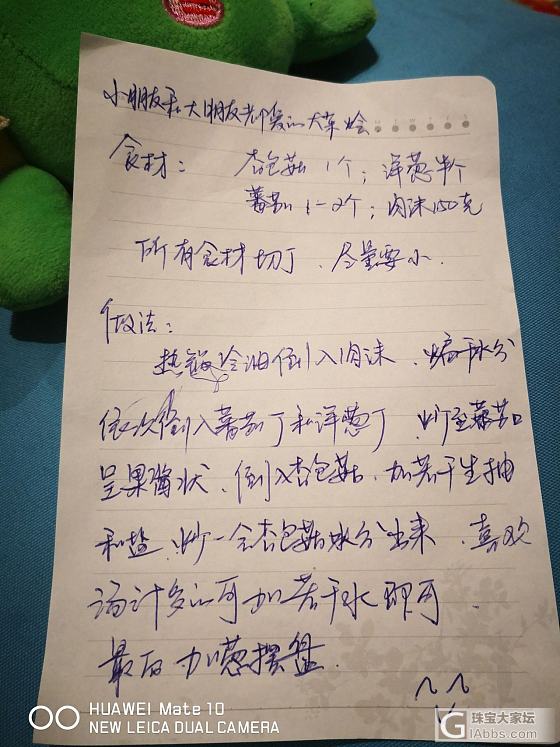 小朋友和大朋友都爱的大菜烩
食材： 杏包菇1个；洋葱半个
蕃茄1-2个；肉沫150克
所有食材切丁、尽量要小.
做法：
热锅冷油倒入肉沫、煸干水分
依次倒入蕃茄丁和洋葱丁、炒至蕃茄
呈果酱状、倒入杏包菇、加若干生抽
和盐、炒一会杏包菇水分出来、喜欢
汤汁多的可加若干水即可、
最后加葱摆盘.
HUAWEI Mate 10
NEW LEICA DUAL CAMERA
珠宝大家坛
iAbbs.com